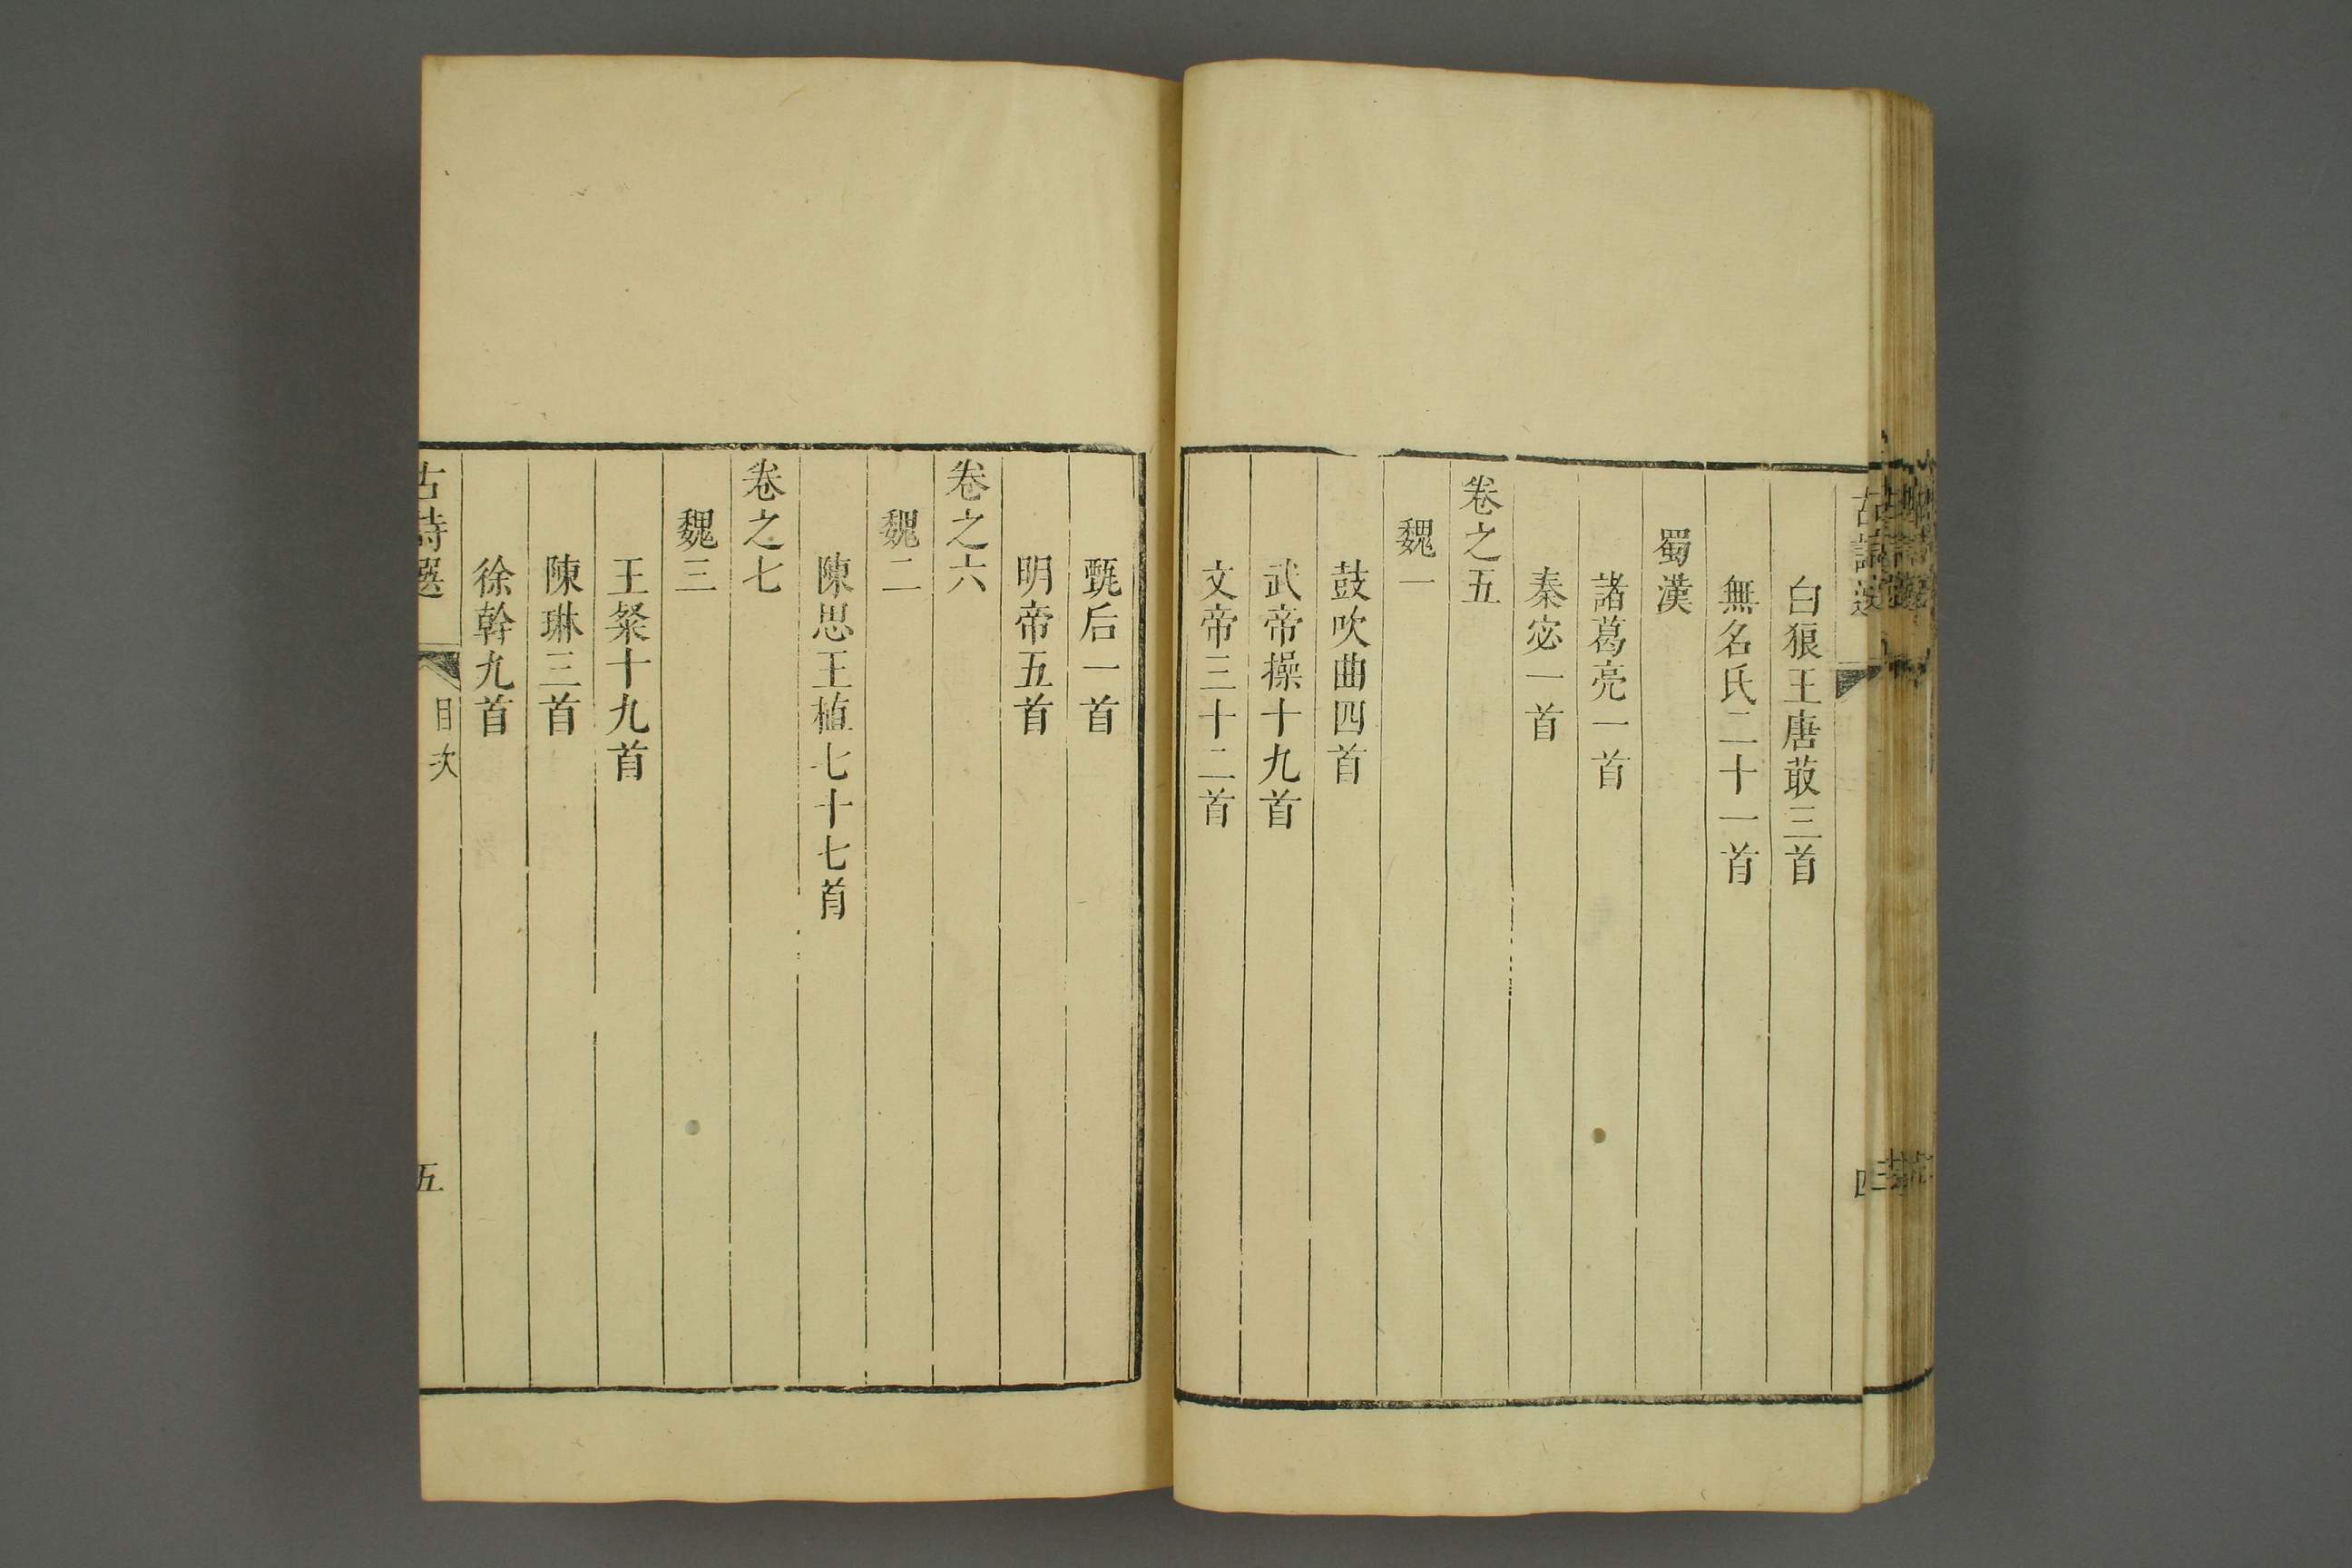 白狼王唐菆三首
無名氏二十一首
蜀漢
諸葛亮一首
秦宓一首
卷之五
魏一
鼓吹曲四首
武帝操十九首
文帝三十二首
甄后一首
明帝五首
卷之六
魏二
陳思王植七十七首
卷之七
魏三
王粲十九首
陳琳三首
徐幹九首
古詩選
目次
五